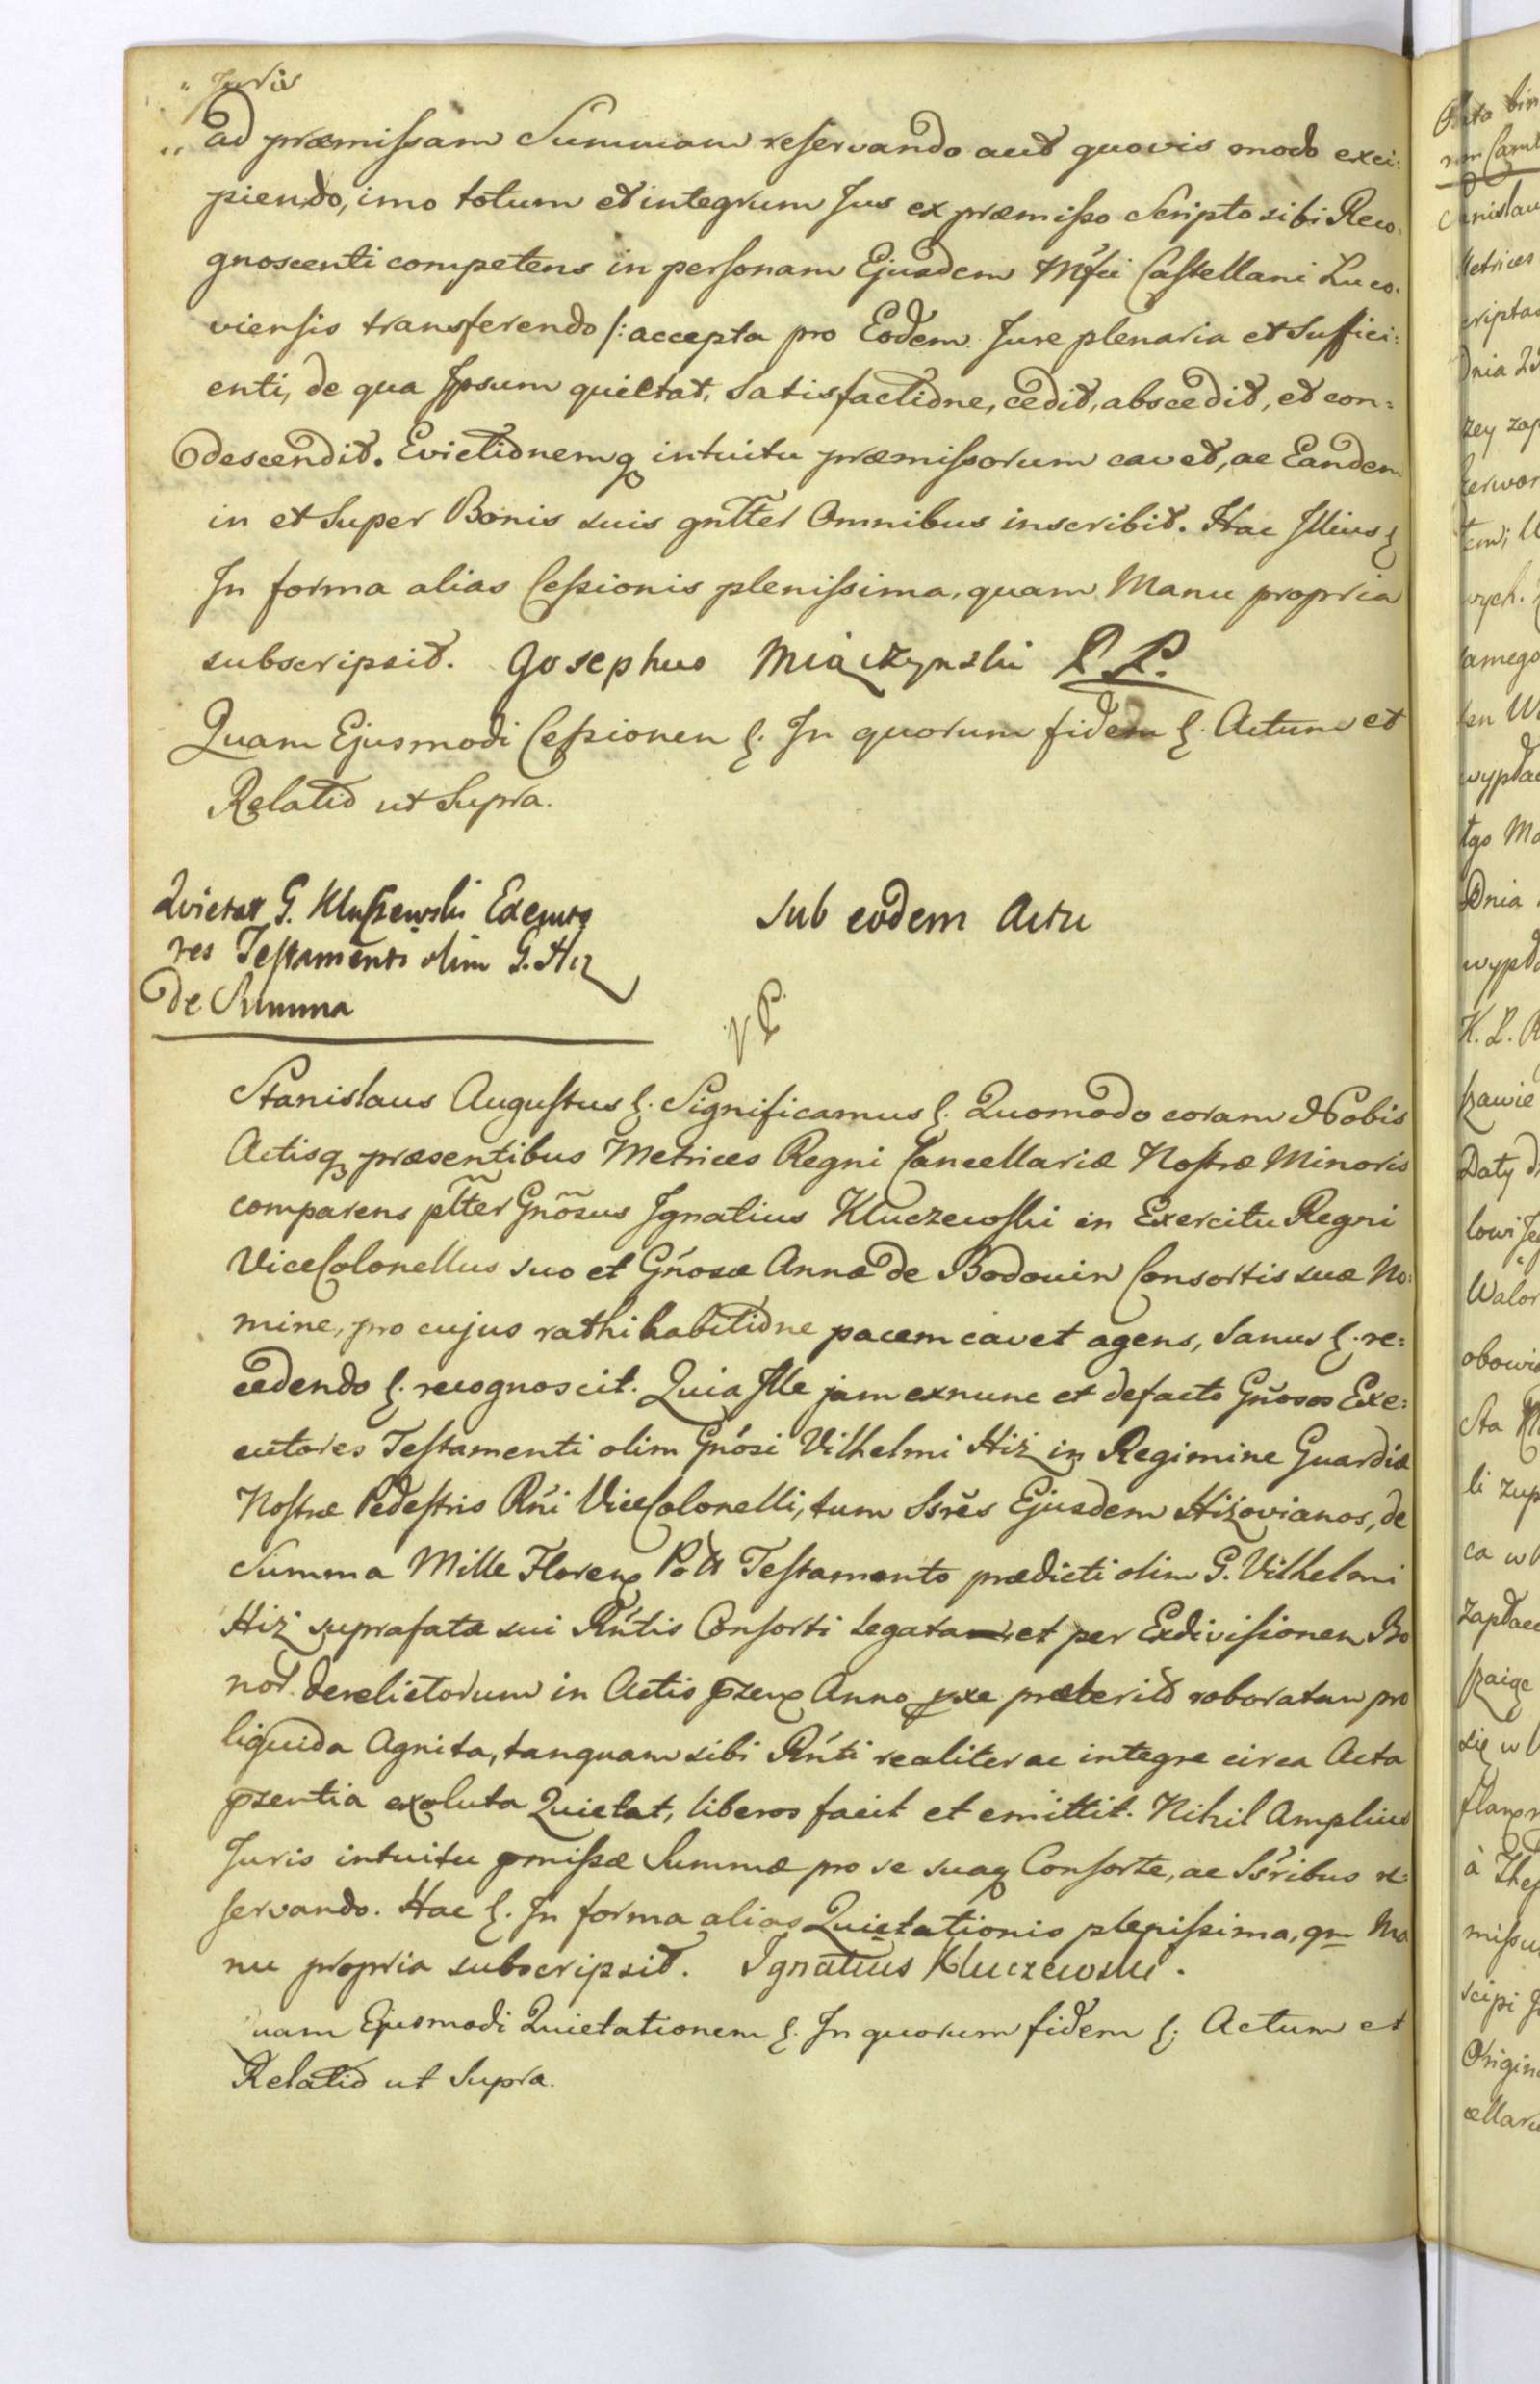 „ Juris
„ ad præmissam Summam reservando aut quovis modo exci:
piendo, imo totum et integrum Jus ex præmisso Scripto sibi Reco:
gnoscenti competens in personam Ejusdem Mfci Castellani Luco:
viensis transferendo /: accepta pro Eodem Jure plenaria et Suffici:
enti, de qua Ipsum quiettat, Satisfactione, cedit, abscedit, et con:
descendit. Evictionemq intuitu præmissorum cavet, ac Eandem
in et Super Bonis suis gntter Omnibus inscribit. Hac Illius &
In forma alias Cessionis plenissima, quam Manu propria
subscripsit. Josephus Miączynski P. P.
Quam Ejusmodi Cessionem &. In quorum fidem &. Actum et
Relatio ut Supra.
Quietat G. Kluszewski Executo
res Testamenti olim G. Hiz
de Summa
Sub eodem Actu
Stanislaus Augustus &. Significamus &. Quomodo coram Nobis
Actisq præsentibus Metrices Regni Cancellariæ Nostræ Minoris
comparens pltter Gnõsus Ignatius Kluczewski in Exercitu Regni
ViceColonellus suo et Gnosæ Annæ de Bodouin Consortis suæ No:
mine, pro cujus rathihabitione pacem cavet agens, Sanus &. re:
cedendo &. recognoscit. Quia Ille jam exnunc et defacto Gnosos Exe:
cutores Testamenti olim Gnosi Vilhelmi Hiż in Regimine Guardiæ
Nostræ Pedestris Rni ViceColonelli, tum Ssrēs Ejusdem Hiżovianos, de
Summa Mille Floren Pol Testamento prædicti olim G. Vilhelmi
Hiż suprafatæ sui Rntis Consorti legata et per Exdivisionem Bo
nor. derelictorum in Actis pzen Anno pxe præterito roboratam pro
liquida Agnita, tanquam sibi Rnti realiter ac integre circa Acta
pzentia exoluta Quietat, liberos facit et emittit. Nihil Amplius
Juris intuitu pmissæ Summæ pro se suaq Consorte, ac Ssribus re:
servando. Hac &. In forma alias Quietationis plenissima, qm Ma
nu propria subscripsit. Ignatius Kluczewski.
uam Ejusmodi Quietationem &. In quorum fidem &. Actum et
Relatio ut Supra.